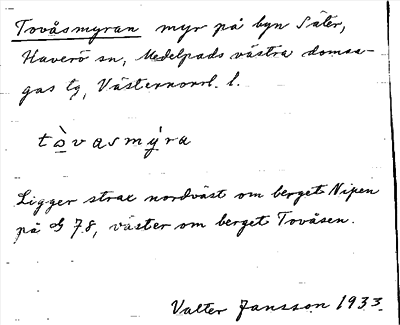 Tovåsmyran myr på byn Säter,
Haverö sn, Medelpads västra domsa-
gas tg, Västernorrl. l.
tò̲vasmý̲ra
Ligger strax nordväst om berget Nipen
på 78, väster om berget Tovåsen.
Valter Jansson 1933.